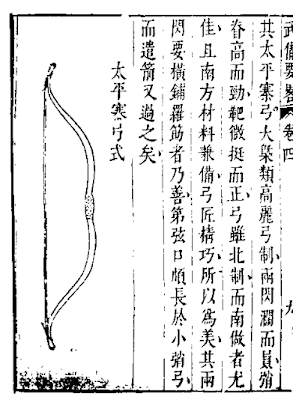 武備要畧 卷四 九
其太平寨弓大槩類高麗弓制兩閃濶而弰
脊高而勁靶微挺而正弓雖北制而南做者尤
佳且南方材料兼備弓匠精巧所以為美其兩
閃要橫鋪羅筋者乃善第弦口頗長於小弰弓
而遣箭又過之矣
太平寨弓式